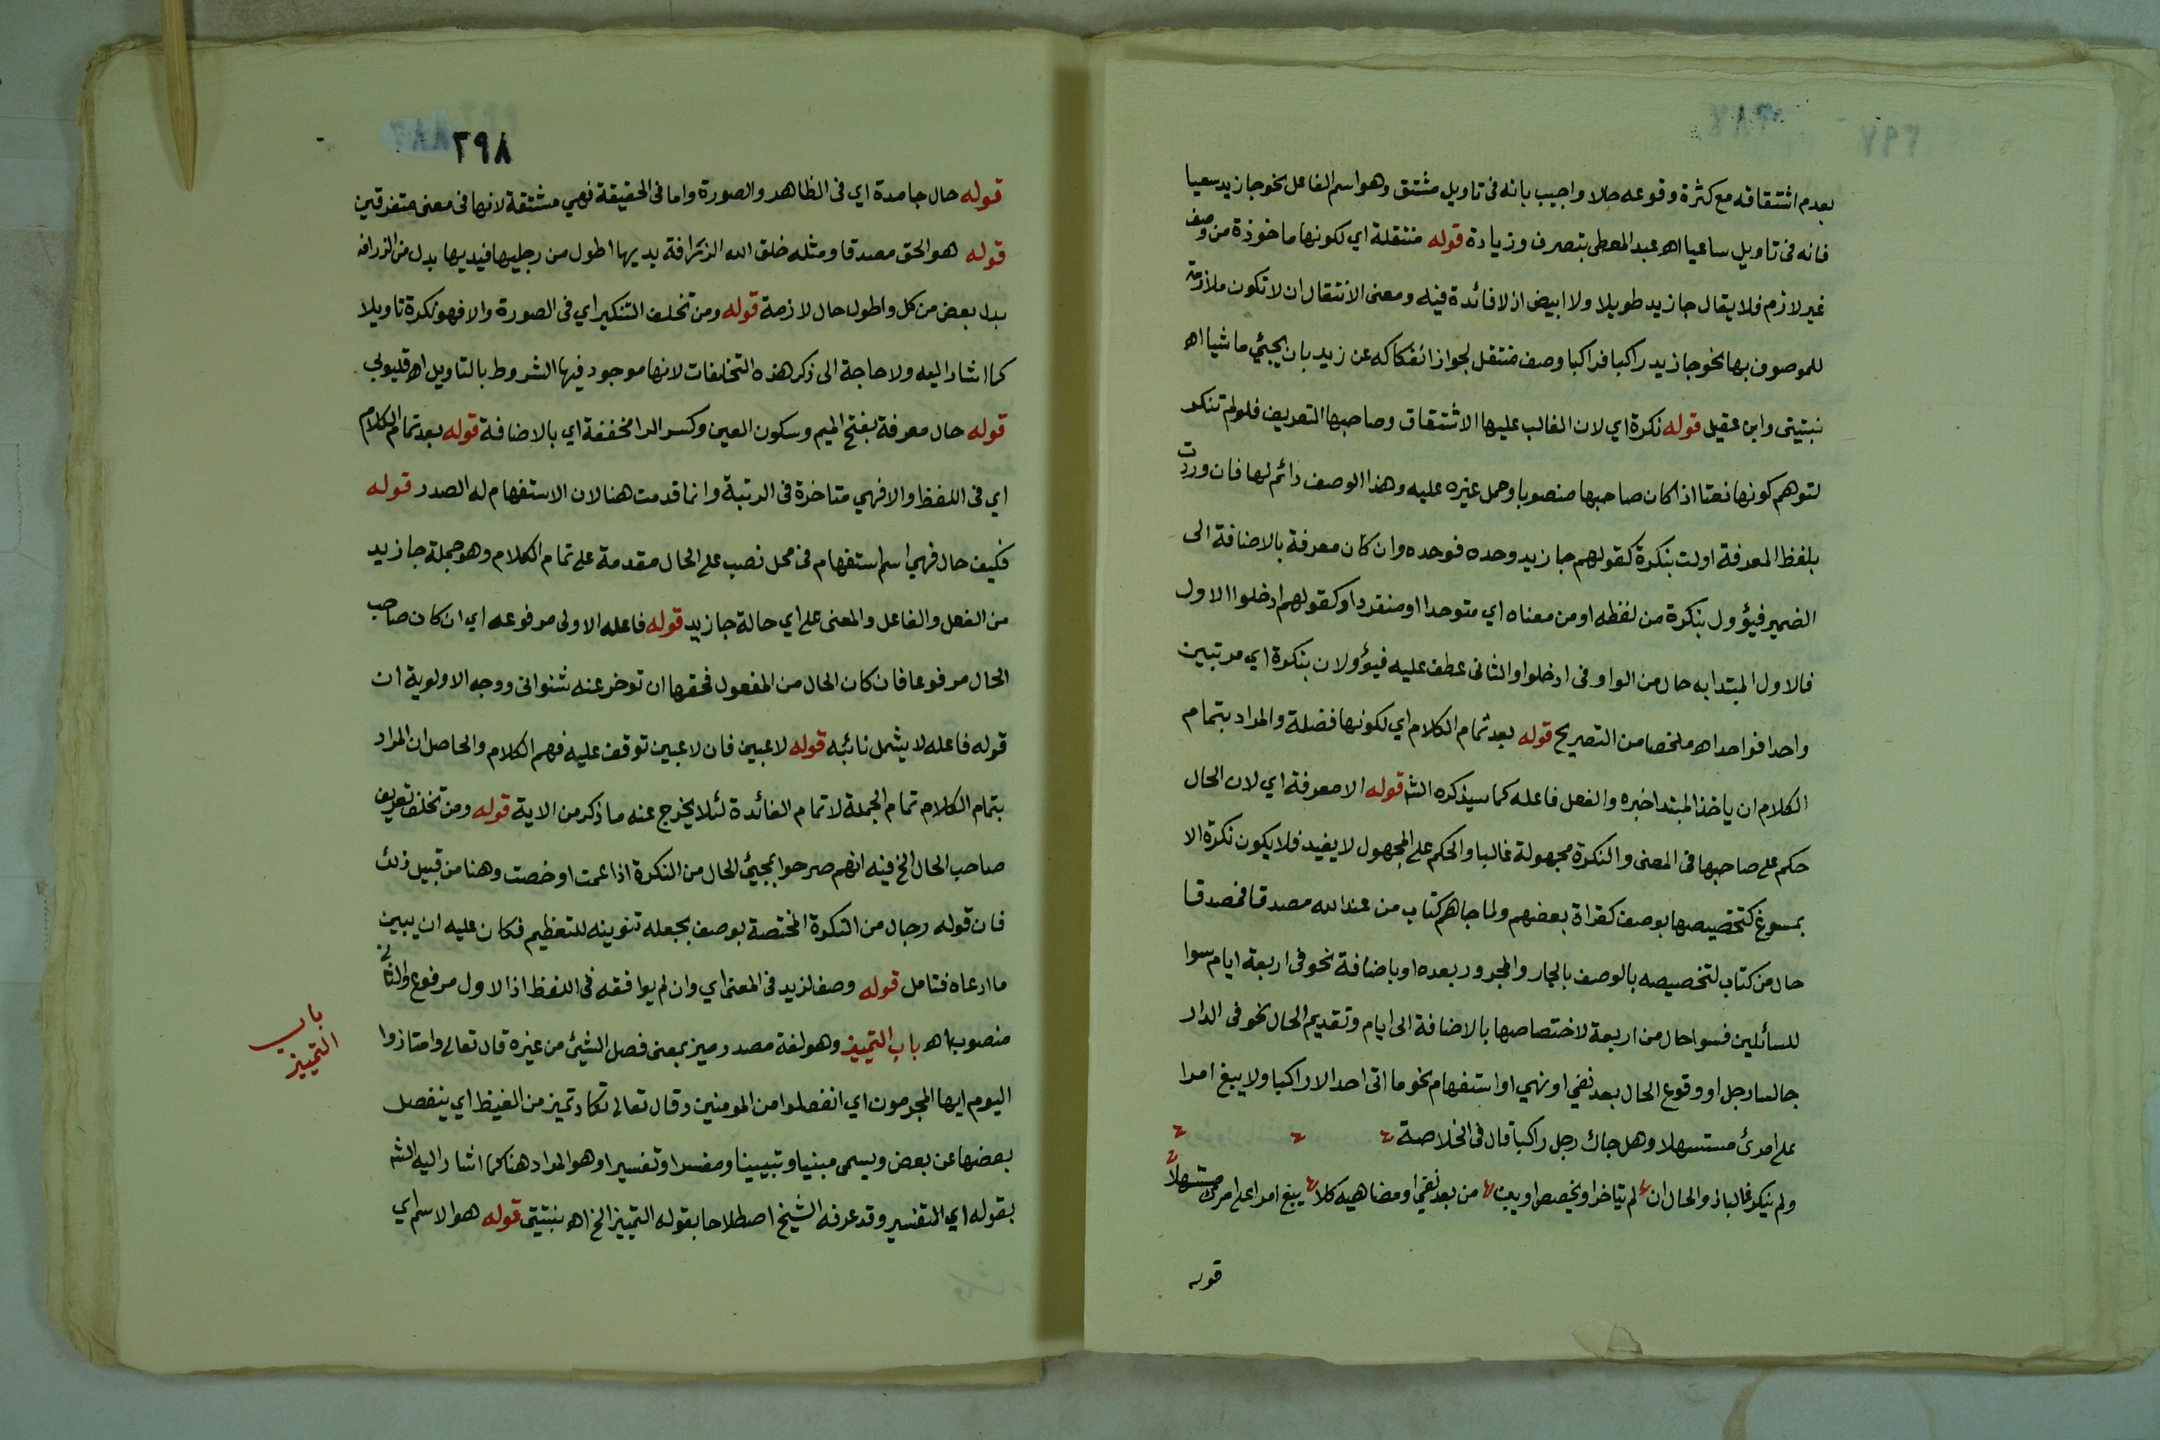 بعدم اشتقاقه مع كثرة وقوعه حالا واجيب بانه في تاويل مشتق وهو اسم الفاعل نحو جا زيد سعيا
فانه في تاويل ساعيا اه عبد المعطي بتصرف وزيادة قوله منتقلة اي لكونها ماخوذة من وصف
غير لازم فلا يقال جا زيد طويلا ولا ابيض اذ لا فائدة فيه ومعنى الانتقال ان لا تكون ملازمة
للموصوف بها نحو جا زيد راكبا فراكبا وصف منتقل لجواز انفكاكه عن زيد بان يجيئ ماشيا اه
نبتيتي وابن عقيل قوله نكرة اي لان الغالب عليها الاشتقاق وصاحبها التعريف فلو لم تنكر
لتوهم كونها نعتا اذا كان صاحبها منصوبا وحمل غيره عليه وهذا الوصف دائم لها فان وردت
بلفظ المعرفة اولت بنكرة كقولهم جا زيد وحده فوحده وان كان معرفة بالاضافة الى
الضمير فيؤول بنكرة من لفظه او من معناه اي متوحدا او منفردا وكقولهم ادخلوا الاول
فالاول المبتدا به حال من الواو في ادخلوا والثاني عطف عليه فيؤولان بنكرة اي مرتبين
واحدا فواحدا اه ملخصا من التصريح قوله بعد تمام الكلام اي لكونها فضلة والمراد بتمام
الكلام ان ياخذ المبتدا خبره والفعل فاعله كما سيذكره الشـ قوله الا معرفة اي لان الحال
حكم على صاحبها في المعنى والنكرة مجهولة غالبا والحكم على المجهول لا يفيد فلا يكون نكرة الا
بمسوغ كتخصيصها بوصف كقراة بعضهم ولما جاهم كتاب من عند الله مصدقا فمصدقا
حال من كتاب لتخصيصه بالوصف بالجار والمجرور بعده او باضافة نحو في اربعة ايام سوا
للسائلين فسوا حال من اربعة لاختصاصها بالاضافة الى ايام وتقديم الحال نحو في الدار
جالسا رجل او وقوع الحال بعد نفي او نهي او استفهام نحو ما اتى احد الا راكبا ولا يبغ امرا
على امرئ مستسهلا وهل جاك رجل راكبا قال في الخلاصة
ولم ينكر غالبا ذو الحال ان لم يتاخر او يخصص او يبن من بعد نفي او مضاهيه كلا يبغ امرا على امرئ مستسهلا
قوله
٢٩٨
قوله حال جامدة اي في الظاهر والصورة واما في الحقيقة فهي مشتقة لانها في معنى متفرقين
قوله هو الحق مصدقا ومثله خلق الله الزرافة يديها اطول من رجليها فيديها بدل من الزرافة
بدل بعض من كل واطول حال لازمة قوله ومن تخلف التنكير اي في الصورة والا فهو نكرة تاويلا
كما اشار اليه ولا حاجة الى ذكر هذه التخلفات لانها موجود فيها الشروط بالتاويل اه قليوبي
قوله حال معرفة بفتح الميم وسكون العين وكسر الرا مخففة اي بالاضافة قوله بعد تمام الكلام
اي في اللفظ والا فهي متاخرة في الرتبة وانما قدمت هنا لان الاستفهام له الصدر قوله
فكيف حال فهي اسم استفهام في محل نصب على الحال مقدمة على تمام الكلام وهو جملة جا زيد
من الفعل والفاعل والمعنى على اي حالة جا زيد قوله فاعله الاولى مرفوعه اي ان كان صاحب
الحال مرفوعا فان كان الحال من المفعول فحقها ان توخر عنه شنواني ووجه الاولوية ان
قوله فاعله لا يشمل نائبه قوله لاعبين فان لاعبين توقف عليه فهم الكلام والحاصل ان المراد
بتمام الكلام تمام الجملة لا تمام الفائدة لئلا يخرج عنه ما ذكر من الاية قوله ومن تخلف تعريف
صاحب الحال الخ فيه انهم صرحوا بمجيئ الحال من النكرة اذا عمت او خصت وهنا من قبيل ذلك
فان قوله رجال من النكرة المختصة بوصف بجعله تنوينه للتعظيم فكان عليه ان يبين
ما ادعاه فتامل قوله وصف لزيد في المعنى اي وان لم يوافقه في اللفظ اذ الاول مرفوع والثاني
منصوب اه باب التمييز وهو لغة مصدر ميز بمعنى فصل الشيئ من غيره قال تعالى وامتازوا
باب
التمييز
اليوم ايها المجرمون اي انفصلوا من المومنين وقال تعالى تكاد تميز من الغيظ اي ينفصل
بعضها عن بعض ويسمى مبينا وتبيينا ومفسرا وتفسيرا وهو المراد هنا كما اشار اليه الشـ
بقوله اي التفسير وقد عرفه الشيخ اصطلاحا بقوله التمييز الخ اه نبتيتي قوله هو الاسم اي